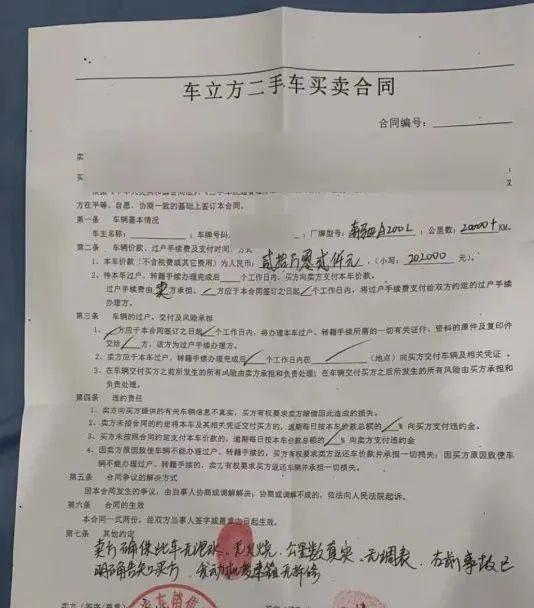 车立方二手车买卖合同
合同编号：
卖
买
方在平等、自愿、协商一致的基础上签订本合同。
第一条 车辆基本情况
车主名称： ；车牌号码： 厂牌型号： A200L ；公里数：20000+ KM。
第二条 车辆价款、过户手续费及支付时间、方式
1、本车价款（不含税费或其它费用）为人民币： 贰拾万零贰仟元 （小写：202000 元）。
2、待本车过户、转籍手续办理完成后 个工作日内，买方向卖方支付本车价款。
过户手续费由 卖 承担。 方应于本合同签订之日起 个工作日内，将过户手续费支付给双方约定的过户手续
办理方。
第三条 车辆的过户、交付及风险承担
1、 方应于本合同签订之日起 个工作日内，将办理本车过户、转籍手续所需的一切有关证件、资料的原件及复印件
交给 方，该方为过户手续办理方。
2、卖方应于本车过户、转籍手续办理完成后 个工作日内在 （地点）向买方交付车辆及相关凭证。
3、在车辆交付买方之前所发生的所有风险由卖方承担和负责处理；在车辆交付买方之后所发生的所有风险由买方承担和
负责处理。
第四条 违约责任
1、卖方向买方提供的有关车辆信息不真实，买方有权要求卖方赔偿因此造成的损失。
2、卖方未按合同的约定将本车及其相关凭证交付买方的，逾期每日按本车价款总额的 %向买方支付违约金。
3、买方未按照合同约定支付本车价款的，逾期每日按本车价款总额的 %向卖方支付违约金
4、因卖方原因致使车辆不能办理过户、转籍手续的，买方有权要求卖方返还车价款并承担一切损失；因买方原因致使车
辆不能办理过户、转籍手续的，卖方有权要求买方返还车辆并承担一切损失。
第五条 合同争议的解决方式
因本合同发生的争议，由当事人协商或调解解决；协商或调解不成的，依法向人民法院起诉。
第六条 合同的生效
本合同一式两份，经双方当事人签字或盖章 起生效。
第七条 其他约定
卖方确保此车无泡水、无火烧、公里数真实、无调表、 事故已
明确告知买方、发动机变速箱无拆修
卖方（签字/盖章）
车销售